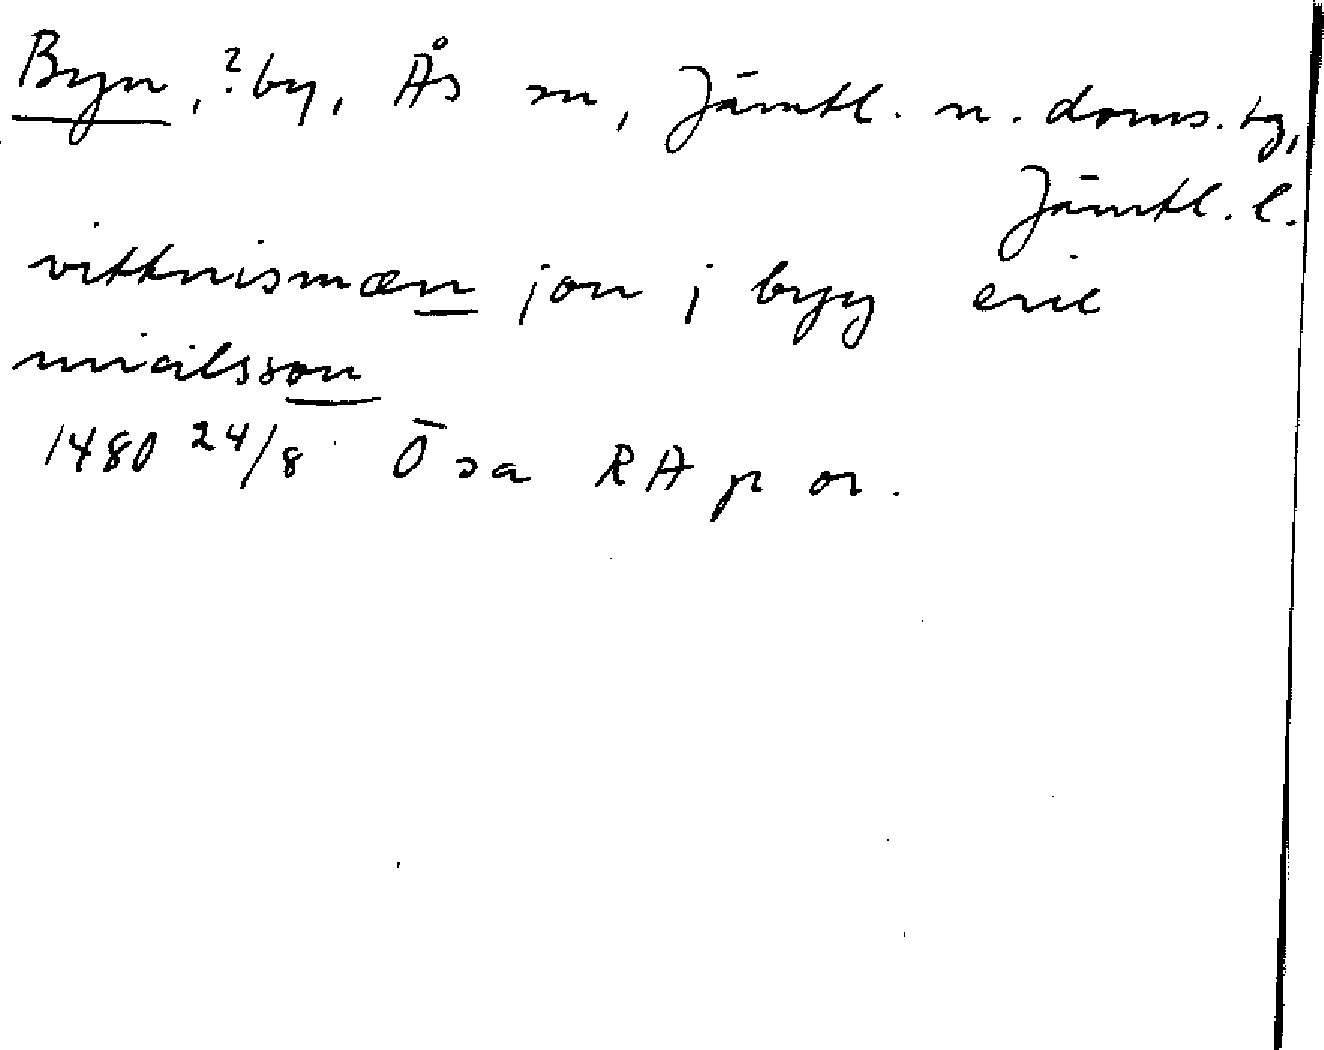 Byn, ?by, Ås sn, Jämtl. n. doms. tg,
Jämtl. l.
vittnismæn jon j byy eric
nicilsson
1480 24/8 Ösa RA p or.